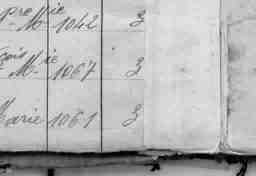 Mie 1042 3
Mie 1067 3
Marie 1061 3